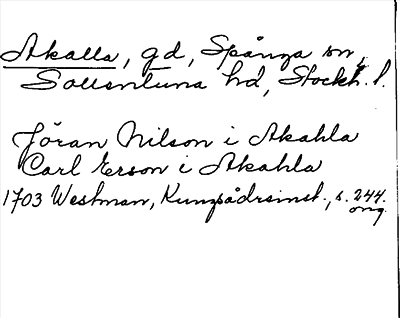 Akalla, gd, Spånga sn,
Sollentuna hd, Stockh. l.
Jöran Nilson i Akahla
Carl Erson i Akahla
1703 Westman, Kungsådrsinst., s. 244.
orig.